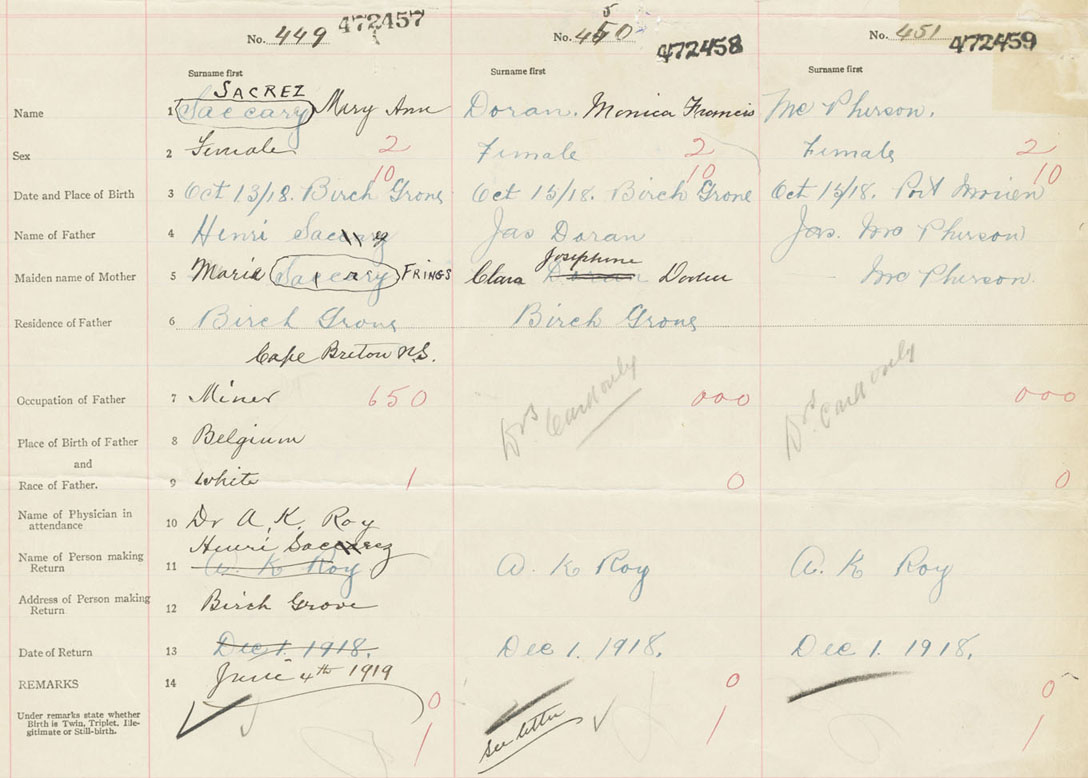 No. 449 472457
No. 450 5 472458
No. 451 472459
Surname first
Surname first
Surname first
SACREZ
Name 1 Saccary Mary Ann Doran. Monica Francis Mc Pherson.
Sex 2 Female 2 Female 2 Female 2
10 10 10
Date and Place of Birth 3 Oct 13/18. Birch Grove Oct 15/18. Birch Grove Oct 15/18. Port Morien
Name of Father 4 Henri Jas Doran Jas. Mc Pherson
Josephine
Maiden name of Mother 5 Maria Saccary FRINGS Clara Doran Mc Pherson.
Residence of Father 6 Birch Grove Birch Grove
Cape Breton N.S.
Drs Card only Drs card only
Occupation of Father 7 Miner 650 000 000
Place of Birth of Father 8 Belgium
and
Race of Father. 9 White 1 0 0
Name of Physician in
attendance 10 Dr A. K. Roy
Henri
Name of Person making
Return 11 A. K Roy A. K Roy A. K Roy
Address of Person making
Return 12 Birch Grove
Date of Return 13 Dec 1. 1918. Dec 1. 1918. Dec 1. 1918.
June 4th 1919
REMARKS 14 0 0 0
Under remarks state whether
Birth is Twin, Triplet, Ille-
gitimate or Still-birth.
see letter
1 1 1